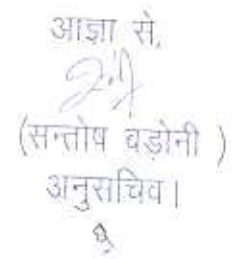 आज्ञा से,
(सन्तोष बड़ोनी )
अनुसचिव।